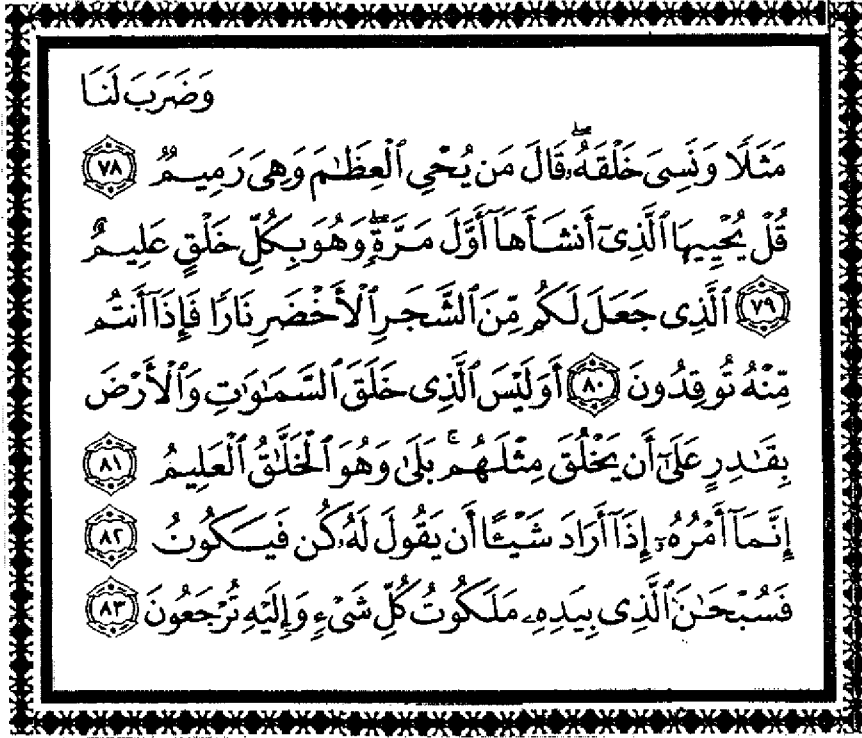 وَضَرَبَ لَنَا
مَثَلًا وَنَسِىَ خَلْقَهُۥۖ قَالَ مَن يُحْىِ ٱلْعِظَٰمَ وَهِىَ رَمِيمٌ ٧٨
قُلْ يُحْيِيهَا ٱلَّذِىٓ أَنشَأَهَآ أَوَّلَ مَرَّةٍۖ وَهُوَ بِكُلِّ خَلْقٍ عَلِيمٌ
٧٩ ٱلَّذِى جَعَلَ لَكُم مِّنَ ٱلشَّجَرِ ٱلْأَخْضَرِ نَارًا فَإِذَآ أَنتُم
مِّنْهُ تُوقِدُونَ ٨٠ أَوَلَيْسَ ٱلَّذِى خَلَقَ ٱلسَّمَٰوَٰتِ وَٱلْأَرْضَ
بِقَٰدِرٍ عَلَىٰٓ أَن يَخْلُقَ مِثْلَهُمۚ بَلَىٰ وَهُوَ ٱلْخَلَّٰقُ ٱلْعَلِيمُ ٨١
إِنَّمَآ أَمْرُهُۥٓ إِذَآ أَرَادَ شَيْـًٔا أَن يَقُولَ لَهُۥ كُن فَيَكُونُ ٨٢
فَسُبْحَٰنَ ٱلَّذِى بِيَدِهِۦ مَلَكُوتُ كُلِّ شَىْءٍ وَإِلَيْهِ تُرْجَعُونَ ٨٣